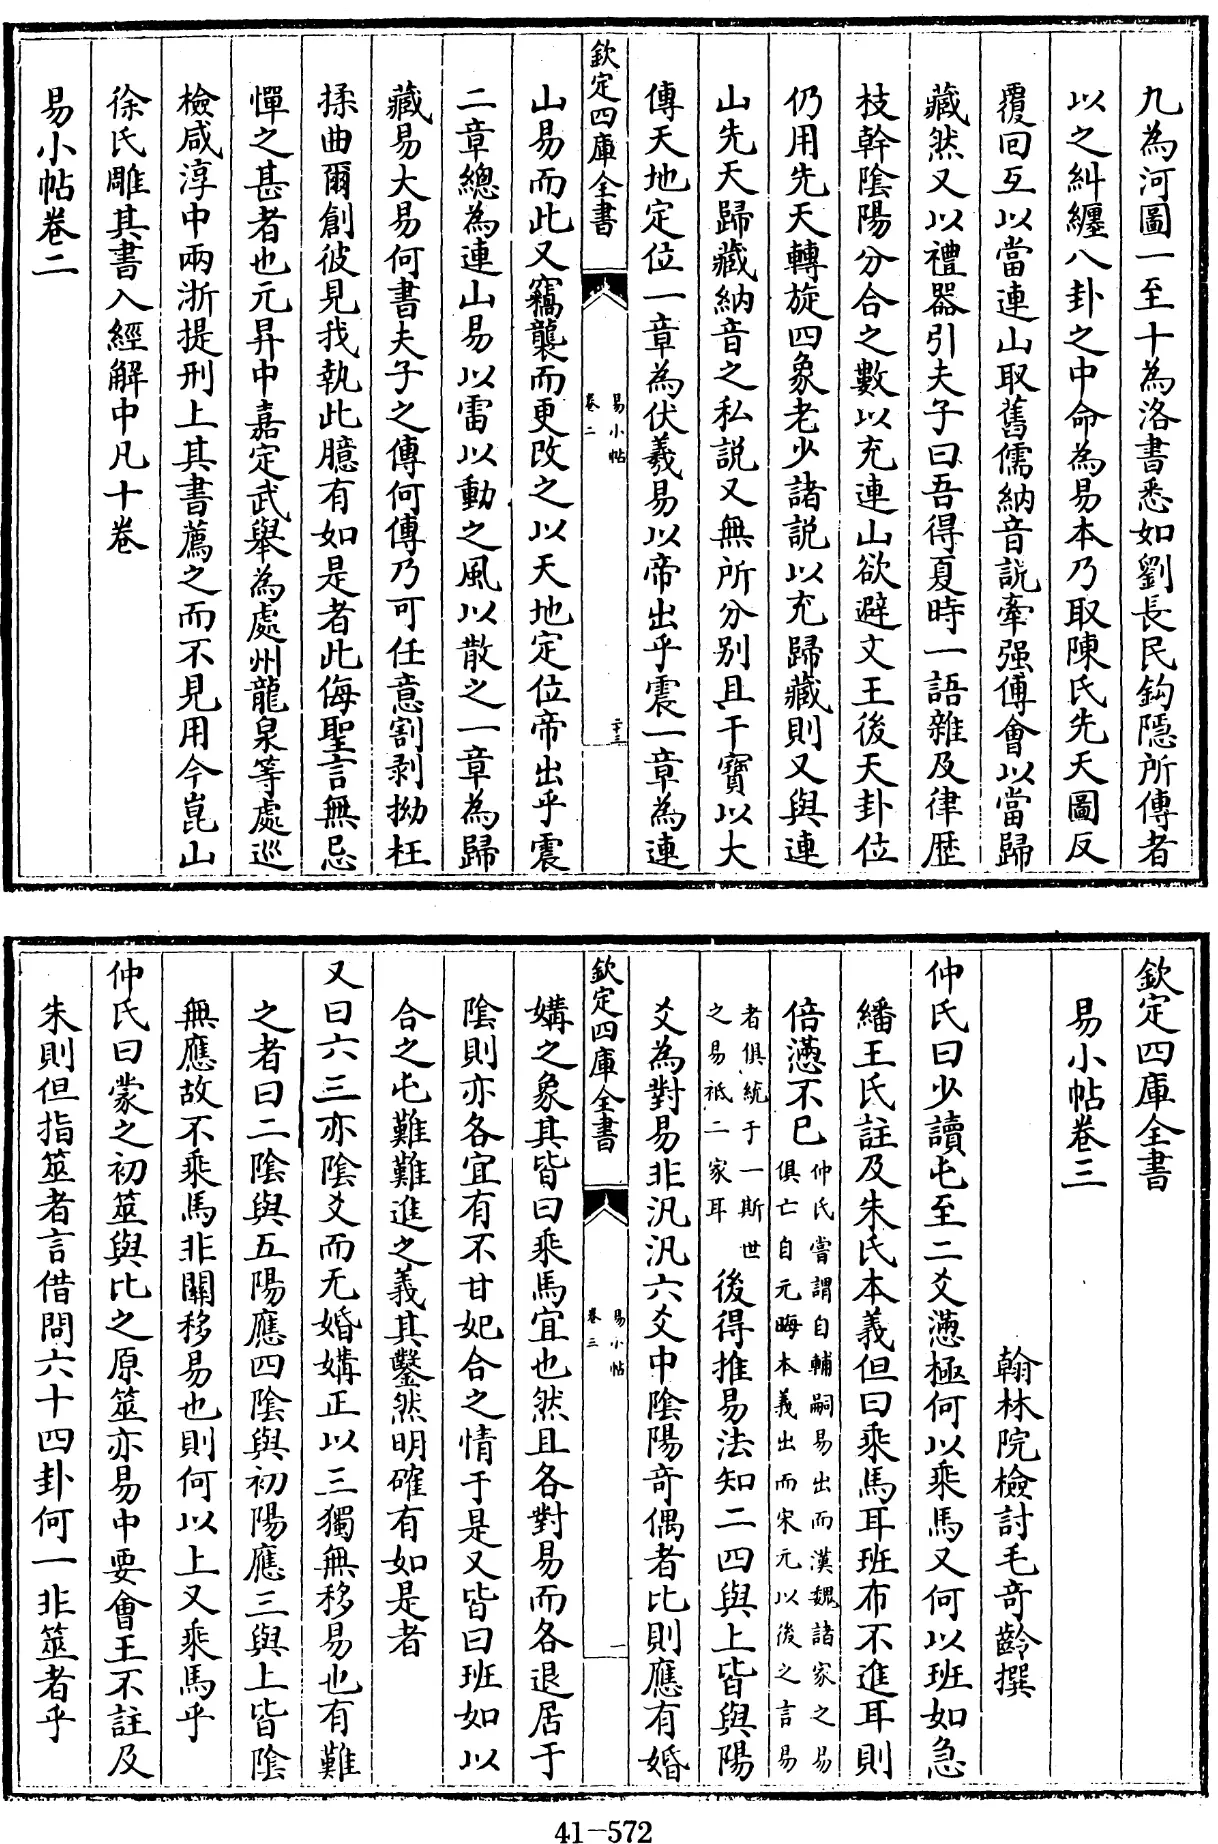 九為河圖一至十為洛書悉如劉長民鈎隱所傳者
以之糾纒八卦之中命為易本乃取陳氏先天圖反
覆回互以當連山取舊儒納音説牽强傅會以當歸
藏然又以禮器引夫子曰吾得夏時一語雜及律歴
枝幹陰陽分合之數以充連山欲避文王後天卦位
仍用先天轉旋四象老少諸説以充歸藏則又與連
山先天歸藏納音之私説又無所分别且干寶以大
傳天地定位一章為伏羲易以帝出乎震一章為連
欽定四庫全書
易小帖
卷二
二十三
山易而此又竊襲而更改之以天地定位帝出乎震
二章總為連山易以雷以動之風以散之一章為歸
藏易大易何書夫子之傳何傳乃可任意割剥拗枉
揉曲爾創彼見我執此臆有如是者此侮聖言無忌
憚之甚者也元昇中嘉定武舉為處州龍泉等處巡
檢咸淳中兩浙提刑上其書薦之而不見用今崑山
徐氏雕其書入經解中凡十卷
易小帖卷二
欽定四庫全書
易小帖卷三
翰林院檢討毛奇齡撰
仲氏曰少讀屯至二爻懣極何以乘馬又何以班如急
繙王氏註及朱氏本義但曰乘馬耳班布不進耳則
倍懣不已
仲氏嘗謂自輔嗣易出而漢魏諸家之易
俱亡自元晦本義出而宋元以後之言易
者俱統于一斯世
之易祗二家耳
後得推易法知二四與上皆與陽
爻為對易非汎汎六爻中陰陽奇偶者比則應有婚
欽定四庫全書
易小帖
卷三
一
媾之象其皆曰乘馬宜也然且各對易而各退居于
陰則亦各宜有不甘妃合之情于是又皆曰班如以
合之屯難難進之義其鑿然明確有如是者
又曰六三亦陰爻而无婚媾正以三獨無移易也有難
之者曰二陰與五陽應四陰與初陽應三與上皆陰
無應故不乘馬非關移易也則何以上又乘馬乎
仲氏曰蒙之初筮與比之原筮亦易中要會王不註及
朱則但指筮者言借問六十四卦何一非筮者乎
41-572